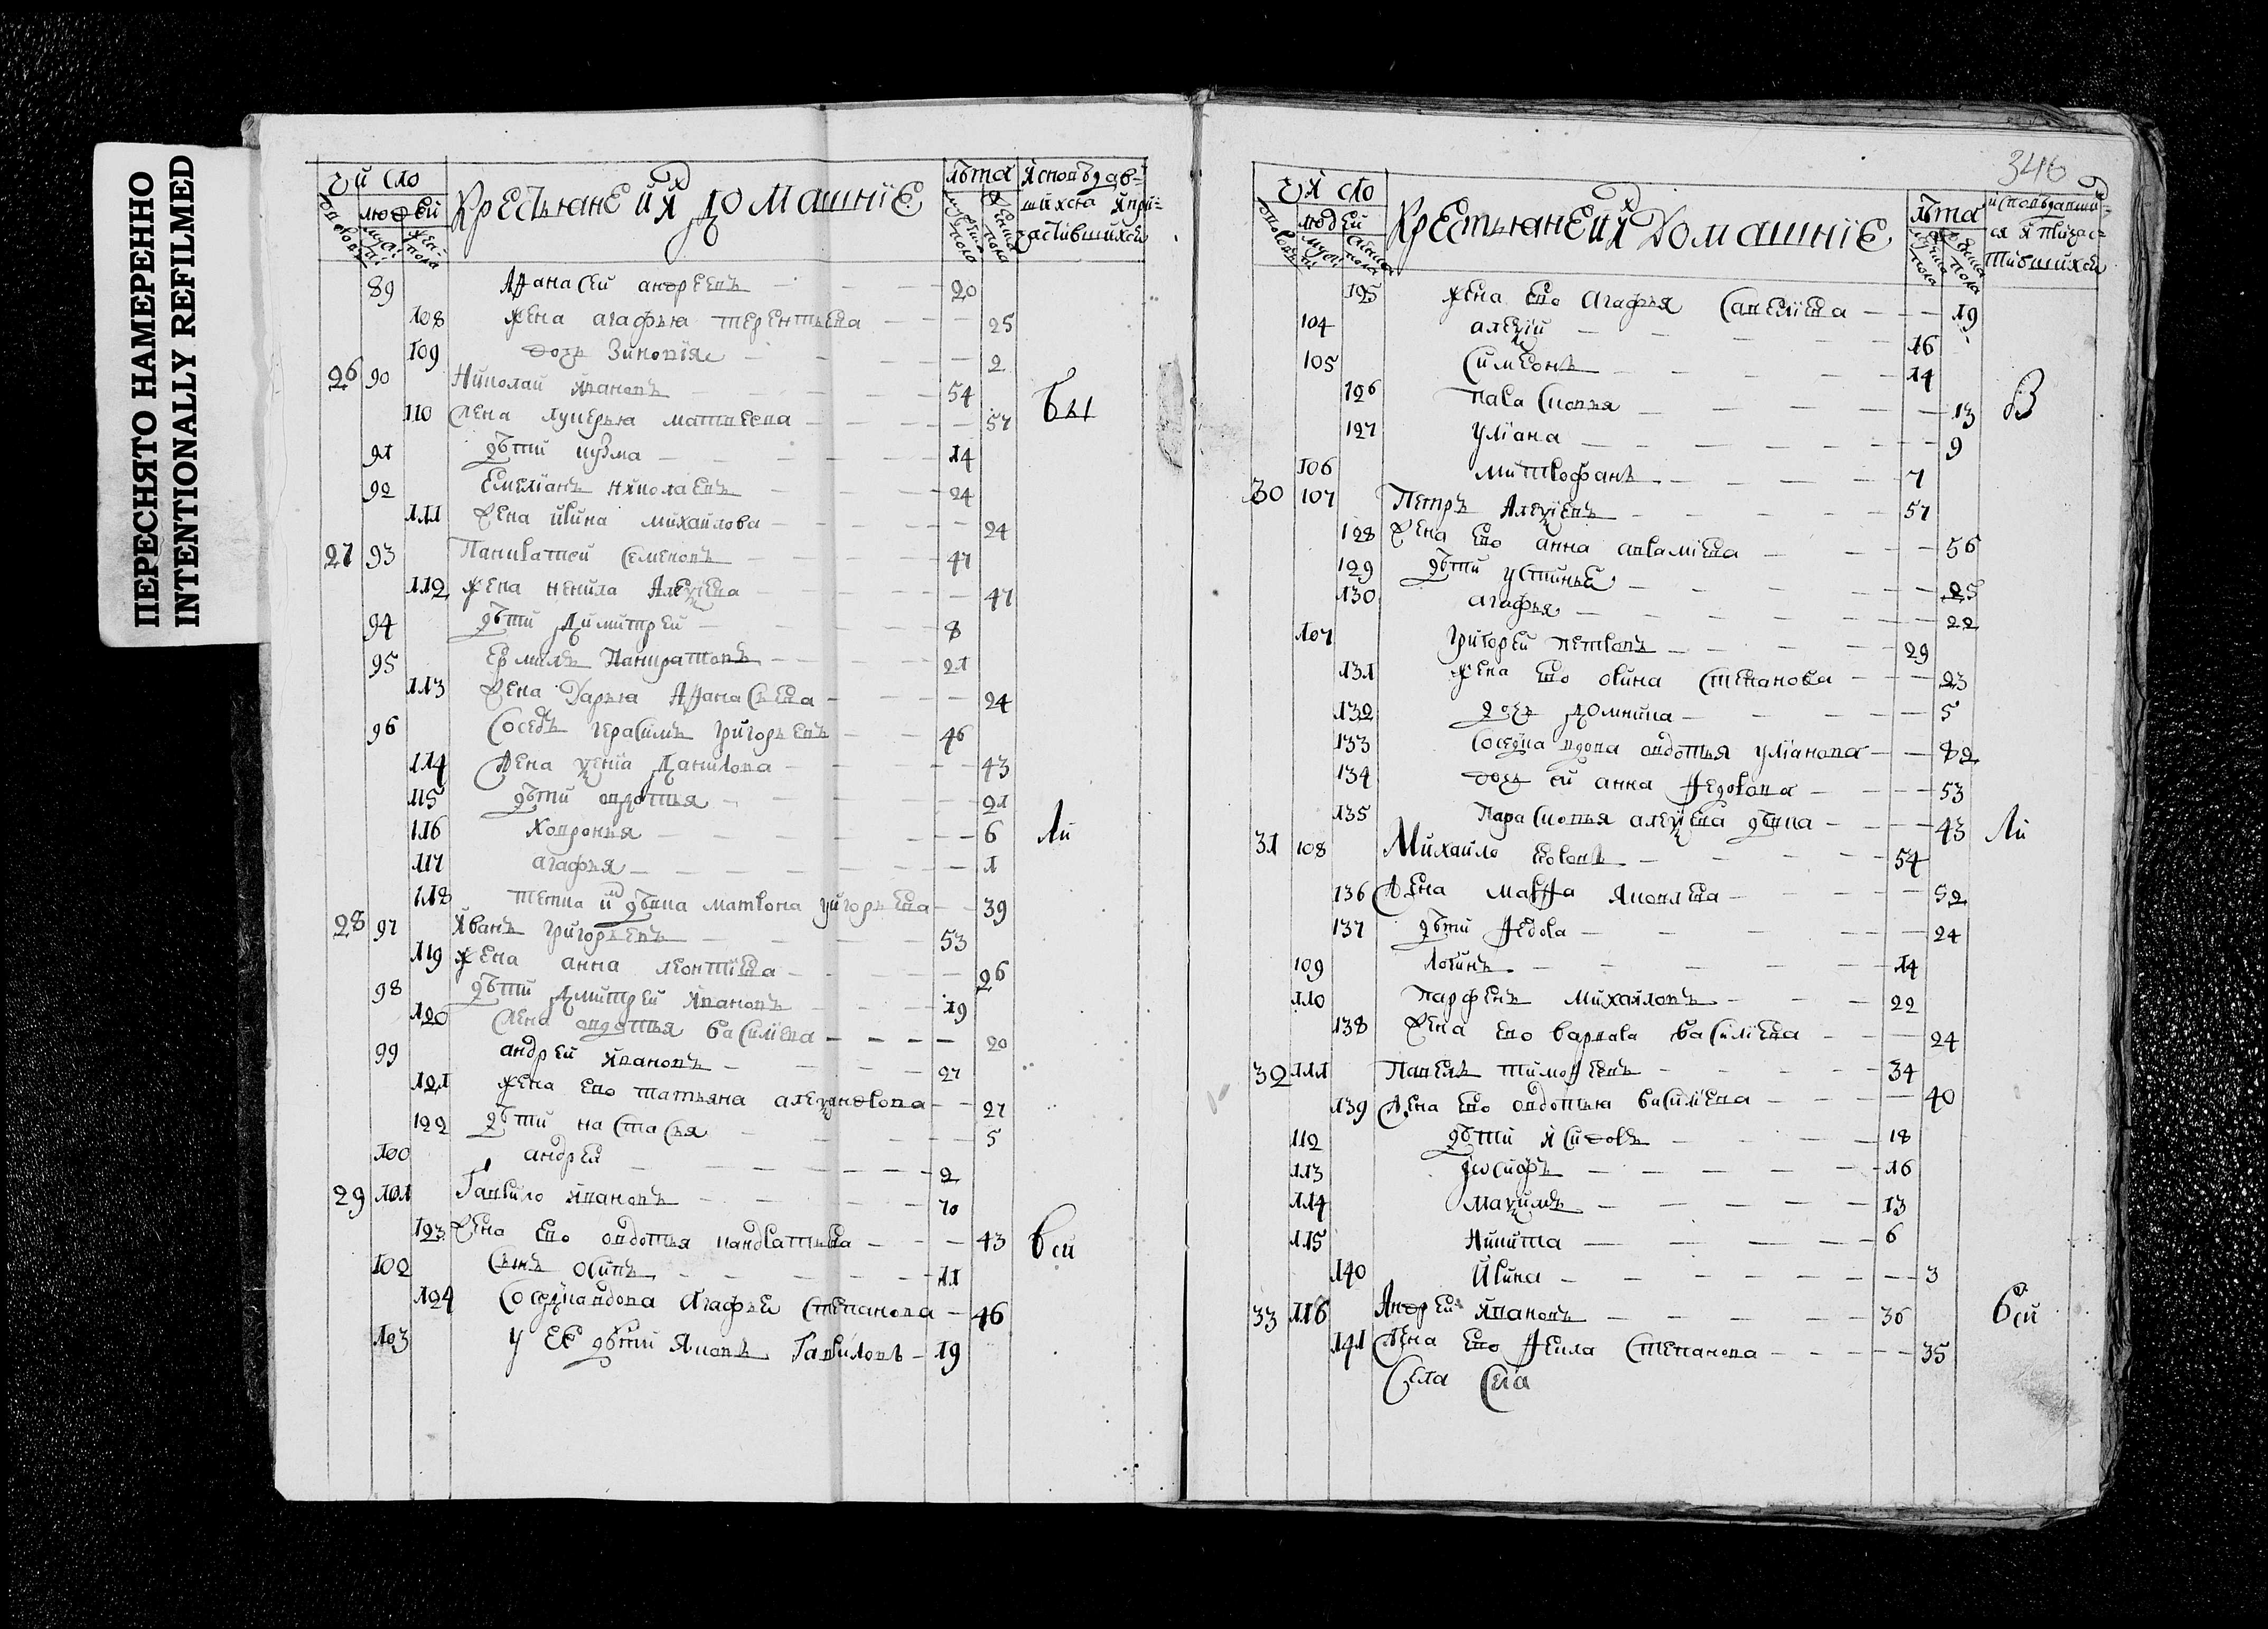 ПЕРЕСНЯТО НАМЕРЕННО
INTENTIONALLY REFILMED
число
людей
Крестьяне и их домашнїе
лѣта
исповѣдав-
шихся и при-
частившихся
89 Афанасей андреевъ 20
108 жена агафья терентьева 25
109 дочь Зиновїя 2
26 90 Николай ивановъ 54
110 жена лукерья матвеева 57 бы
91 дѣти кузма 14
92 Емелїанъ николаевъ 24
111 жена ирина михайлова 24
27 93 Панкратей семеновъ 47
112 жена ненила Алеѯїева 47
94 дѣти Димитрей 8
95 Ермилъ Панкратовъ 21
113 жена Дарья Афанасьева 24
96 Соседъ герасимъ григорьевъ 46
114 жена ѯенїа Данилова 43
115 дѣти овдотья 21
116 ховронья 6 ли
117 агафья 1
118 тетка и девка матрона григорьева 39
28 97 Иванъ григорьевъ 53
119 жена анна леонтїева 26
98 дѣти Дмитрей ивановъ 19
120 жена овдотья василїева 20
99 андрей ивановъ 27
121 жена ево татьяна алеѯандрова 27
122 дѣти настасья 5
100 андрей 2
29 101 Гаврило ивановъ 70
123 жена ево овдотья кандратьева 43 вси
102 сынъ осипъ 11
124 соседка вдова Агафья степанова 46
103 у ее дѣти Яковъ Гавриловъ 19
346
число
людей
Крестьяне и их Домашнїе
лѣта
исповѣдавши-
ся и причас-
тившихся
125 жена ево агафья савелїева 19
104 алеѯїй 16
105 симеонъ 14
126 Парасковья 13 в
127 улїана 9
106 митрофанъ 7
30 107 Петръ Алеѯїевъ 57
128 жена ево анна аврамїева 56
129 дѣти устинья 25
130 агафья 22
107 григорей петровъ 29
131 жена ево орина степанова 23
132 дочь Домника 5
133 соседка вдова овдотья улїанова 82
134 дочь ей анна федорова 53
135 Парасковья алеѯїева дѣвка 43 ли
31 108 Михайло егоровъ 54
136 жена марфа яковлева 52
137 дѣти федора 24
109 логинъ 14
110 парфенъ михайловъ 22
138 жена ево варвара василїева 24
32 111 Павелъ тимофеевъ 34
139 жена ево овдотья василїева 40
112 дѣти исидоръ 18
113 иосифъ 16
114 маѯимъ 13
115 никита 6
140 Ирина 3
33 116 Андрей ивановъ 36 вси
141 жена ево фекла степанова 35
села сего